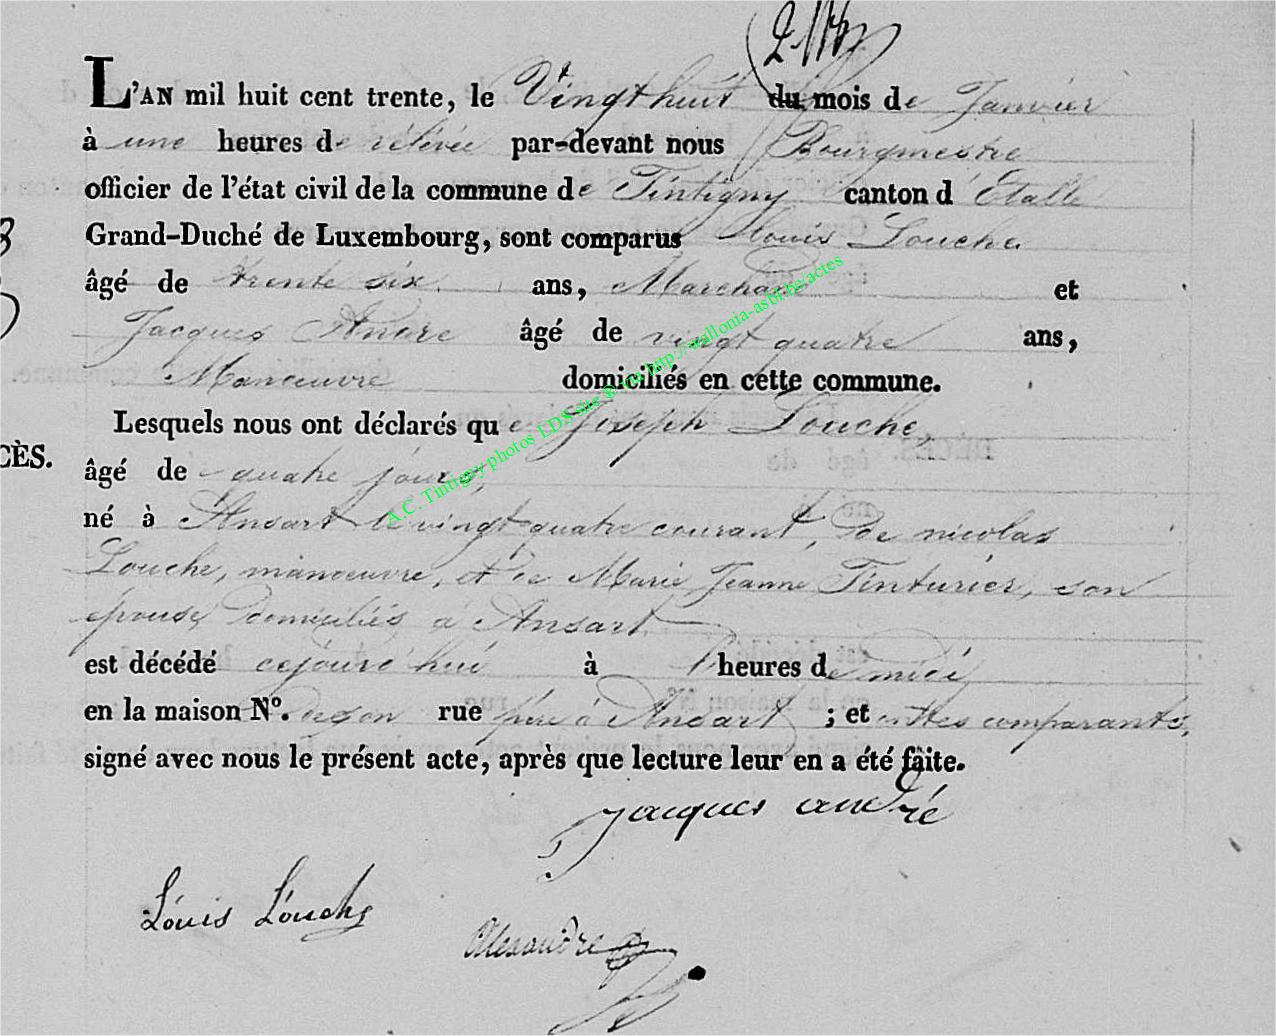 L'AN mil huit cent trente, le Vingt huit du mois de Janvier
à une heures de rélévée par-devant nous Bourgmestre
officier de l'état civil de la commune de Tintigny canton d'Etalle
Grand-Duché de Luxembourg, sont comparus Louis Louche
âgé de trente six ans, Marchand et
Jacques André âgé de vingt quatre ans,
Manœuvre domiciliés en cette commune.
Lesquels nous ont déclarés que Joseph Louche,
CÈS.
âgé de quatre jours,
né à Ansart le vingt quatre courant, de nicolas
Louche, manœuvre, et de Marie Jeanne Tinturier, son
épouse, domiciliés à Ansart
est décédé cejourd'hui à heures de midi
en la maison N°. de son rue père à Ansart ; et ont les comparants,
signé avec nous le présent acte, après que lecture leur en a été faite.
Jacques andré
Louis Louche
Alexandre
A.C. Tintigny photos LDS site @ via http://wallonia-asbl.be/actes